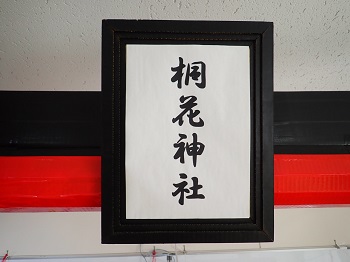 桐花神社